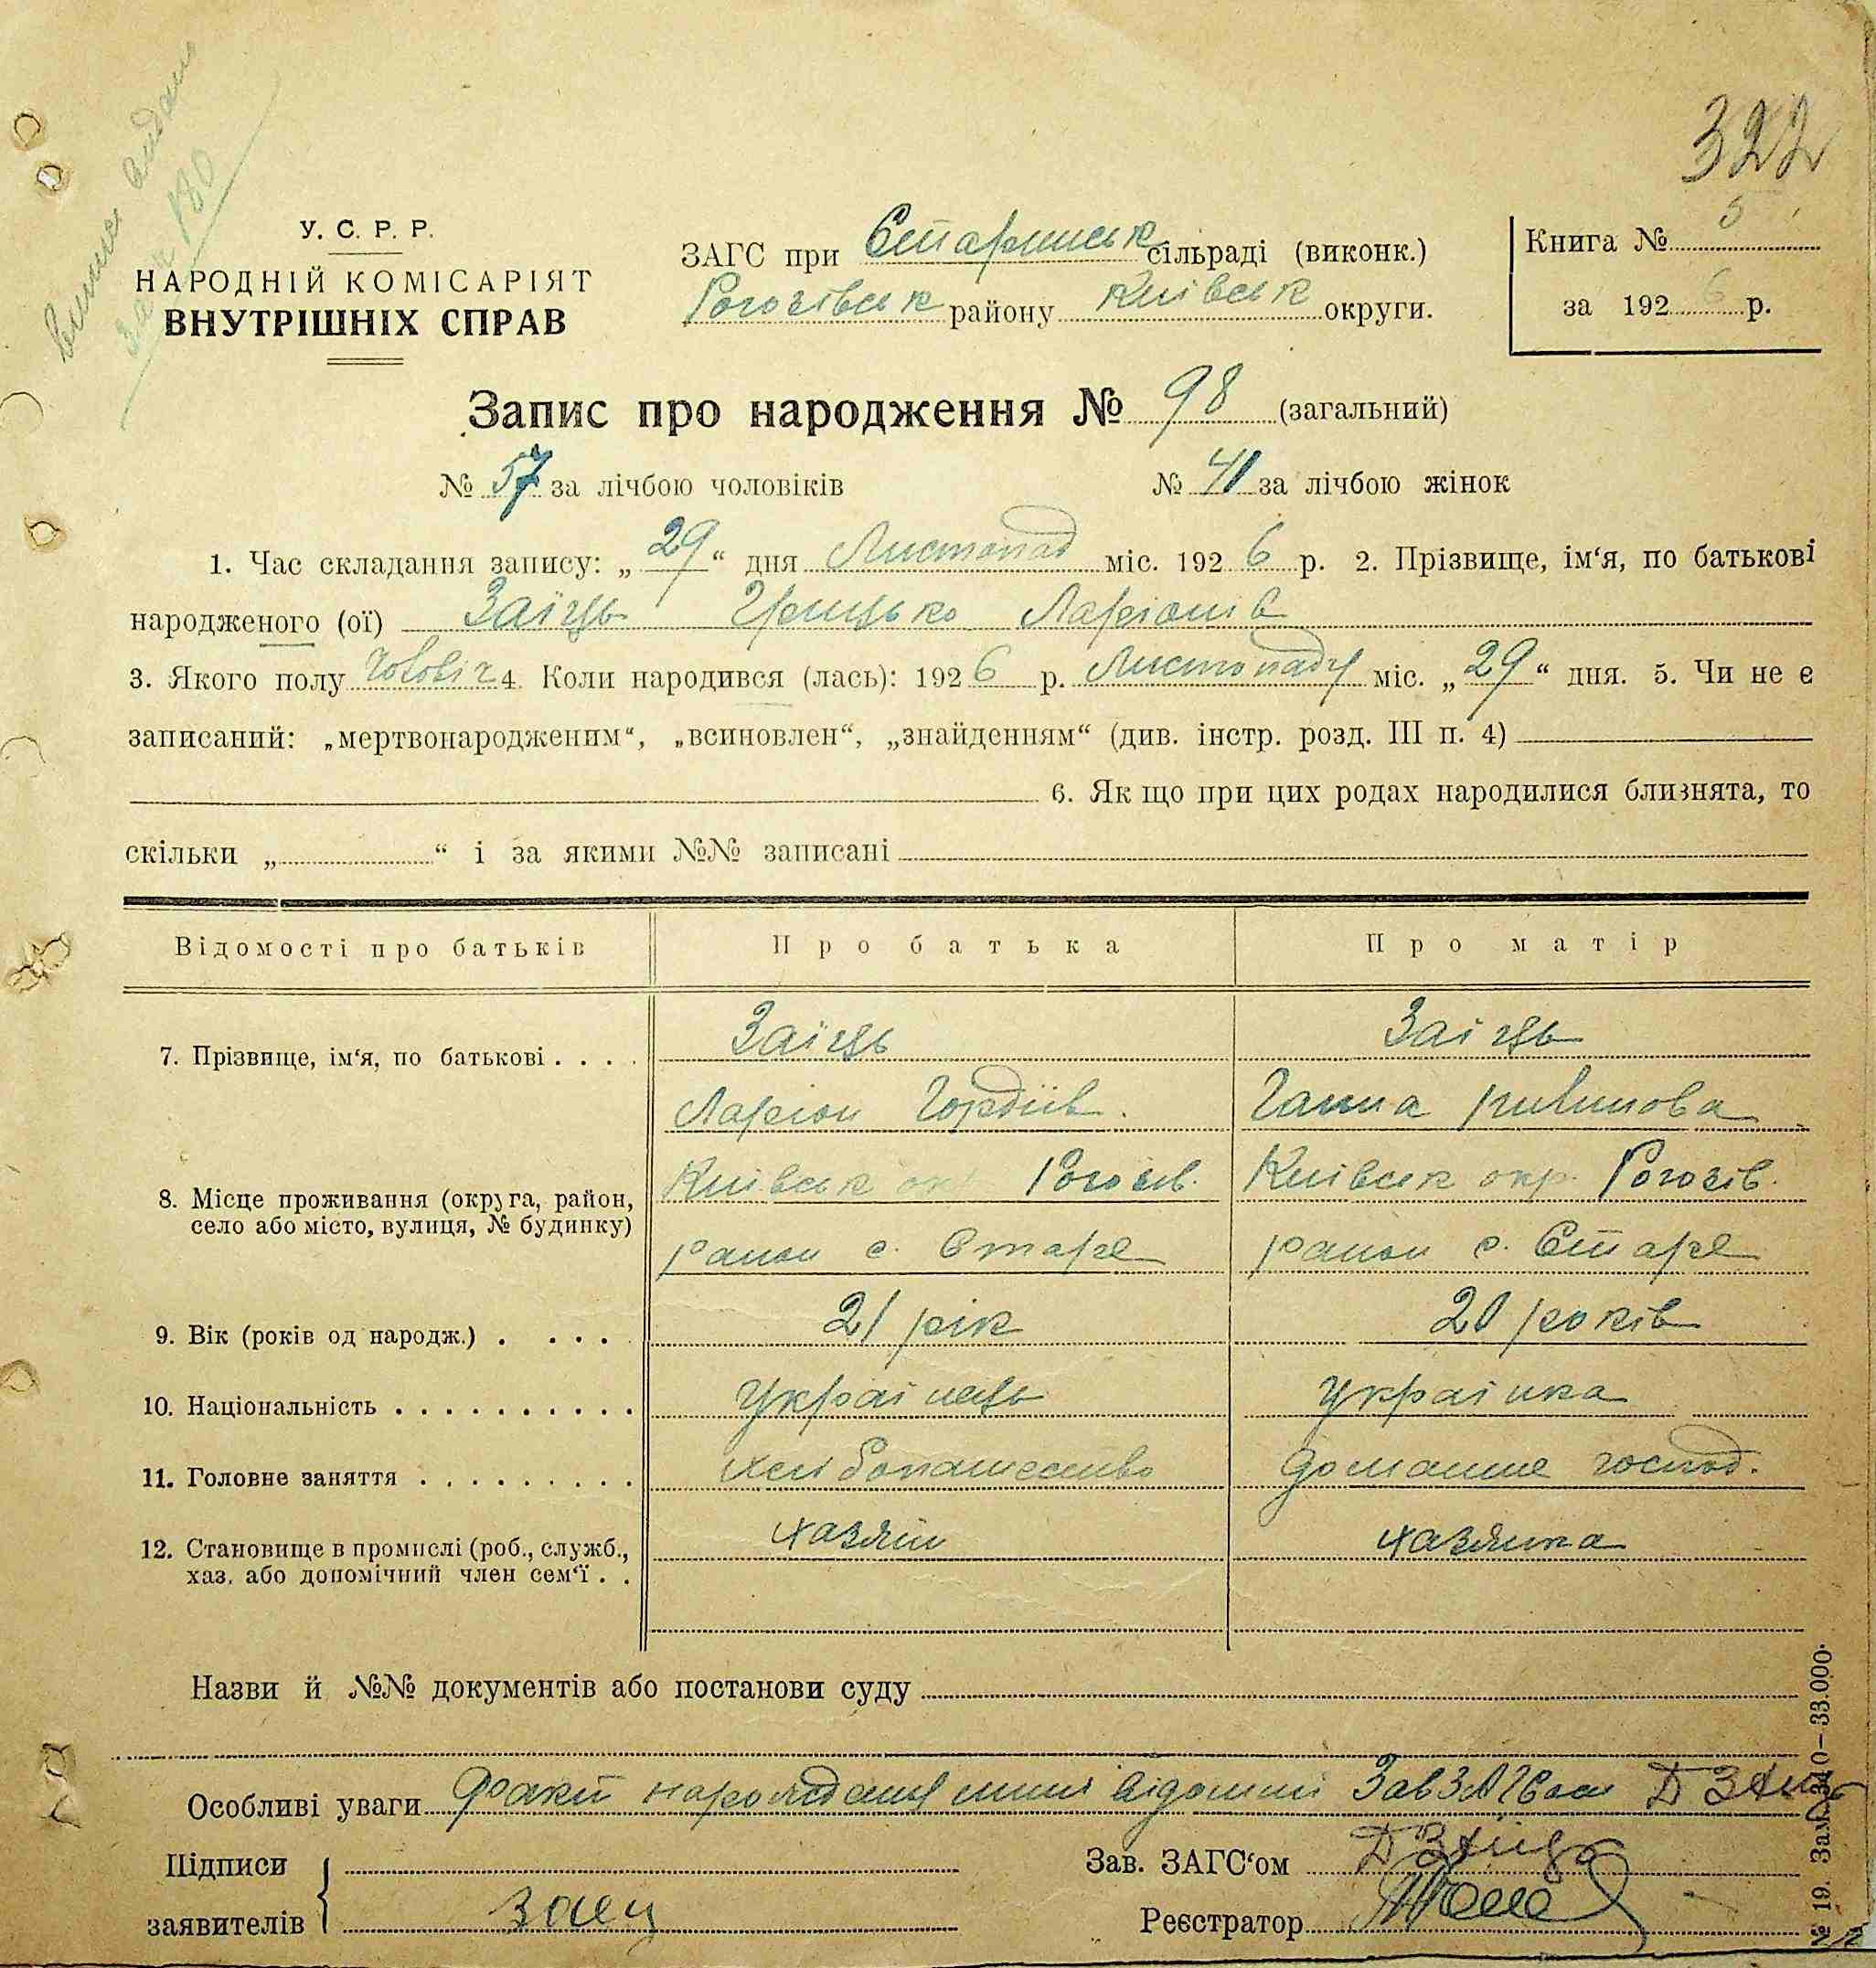 322
У. С. Р. Р.
НАРОДНІЙ КОМІСАРІЯТ
ВНУТРІШНІХ СПРАВ
ЗАГС при Старинськ сільраді (виконк.)
Рогозівськ району Київськ округи.
Книга № 5
за 1926 р.
Запис про народження № 98 (загальний)
№ 57 за лічбою чоловіків № 41 за лічбою жінок
1. Час складання запису: „29“ дня Листопад міс. 1926 р. 2. Прізвище, ім‘я, по батькові
народженого (ої) Заїць Грицько Ларіонів
3. Якого полу чоловіч 4. Коли народився (лась): 1926 р. Листопаду міс. „29“ дня. 5. Чи не є
записаний: „мертвонародженим“, „всиновлен“, „знайденням“ (див. інстр. розд. III п. 4)
6. Як що при цих родах народилися близнята, то
скільки „ “ і за якими №№ записані
Відомості про батьків Про батька Про матір
7. Прізвище, ім‘я, по батькові . . . . Заїць Заіць
Ларіон Гордіів. Ганна
8. Місце проживання (округа, район, Київськ ок Рогозів. Київськ окр. Рогозів.
село або місто, вулиця, № будинку) район с. Старе район с. Старе
9. Вік (років од народж.) . . . . 21 рік 20 років
10. Національність . . . . . . . . . . Украінець Украінка
11. Головне заняття . . . . . . . . . Хлібопашество домашнє господ.
12. Становище в промислі (роб., служб., хазяін хазяйка
хаз. або допомічний член сем‘ї . .
Назви й №№ документів або постанови суду
Особливі уваги Факт народження мині відомий Зав ЗАГСом Д Заиць
Підписи
заявителів Заец
Зав. ЗАГС‘ом Д Заиць
Реєстратор
№ 19. Зам. 340—33.000.